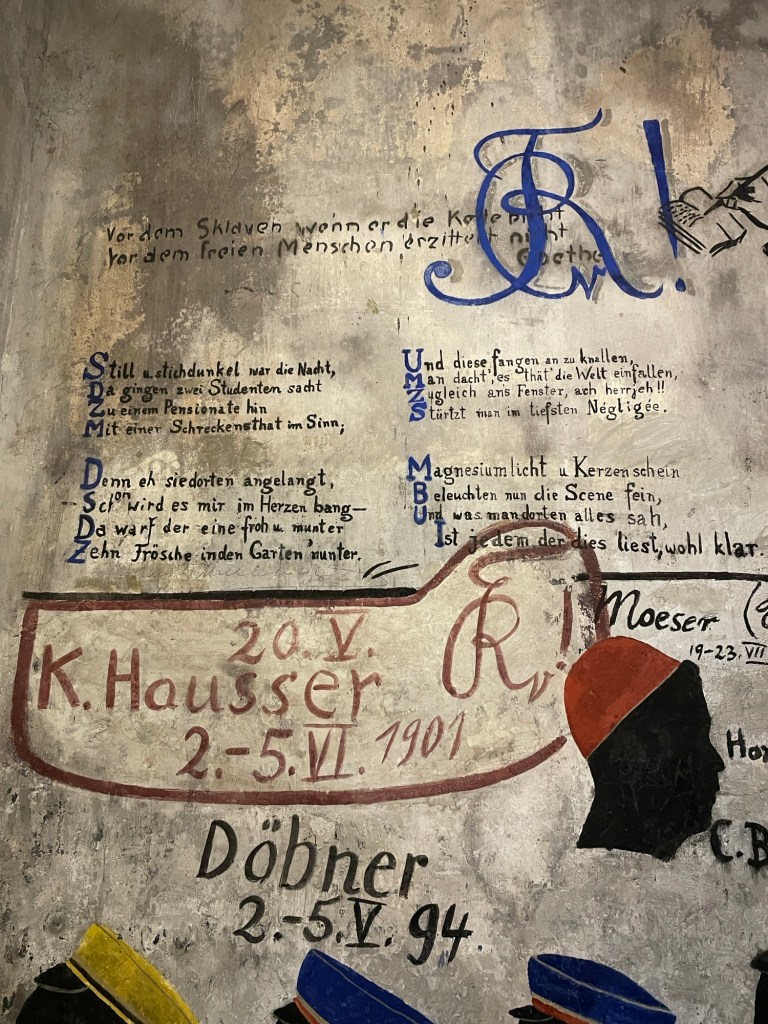 Vor dem Sklaven wenn er die Kette bricht
Vor dem freien Menschen erzittert nicht
Goethe
Still u. stichdunkel war die Nacht,
Da gingen zwei Studenten sacht
Zu einem Pensionate hin
Mit einer Schreckensthat im Sinn;
Denn eh sie dorten angelangt,
Schon wird es mir im Herzen bang—
Da warf der eine froh u. munter
Zehn Frösche in den Garten 'nunter.
Und diese fangen an zu knallen,
Man dacht', es 'thät' die Welt einfallen,
Zugleich ans Fenster, ach herrjeh!!
Stürtzt man im tiefsten Négligée.
Magnesiumlicht u Kerzenschein
Beleuchten nun die Scene fein,
Und was man dorten alles sah,
Ist jedem, der dies liest, wohl klar.
20. V.
K. Hausser
2.-5. VI. 1901
Moeser
19-23. VII
Döbner
2.-5. V. 94.
C. B